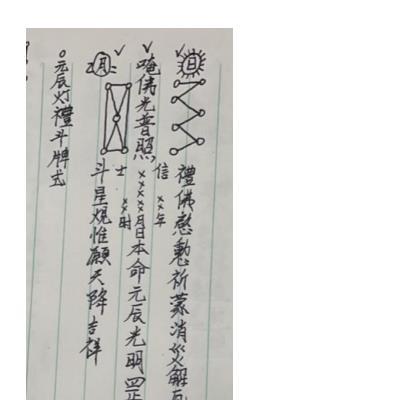 日 禮佛慇懃祈蒙消災解
唵佛光普照 信士 ××年××××月日××时本命元辰光明四
月 斗星焜惟願天降吉祥
元辰灯禮斗牌式